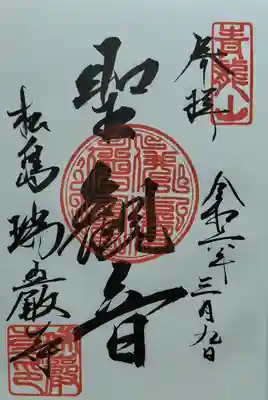 青龍山
奉拝
令和六年三月九日
聖観音
松島 瑞巌寺